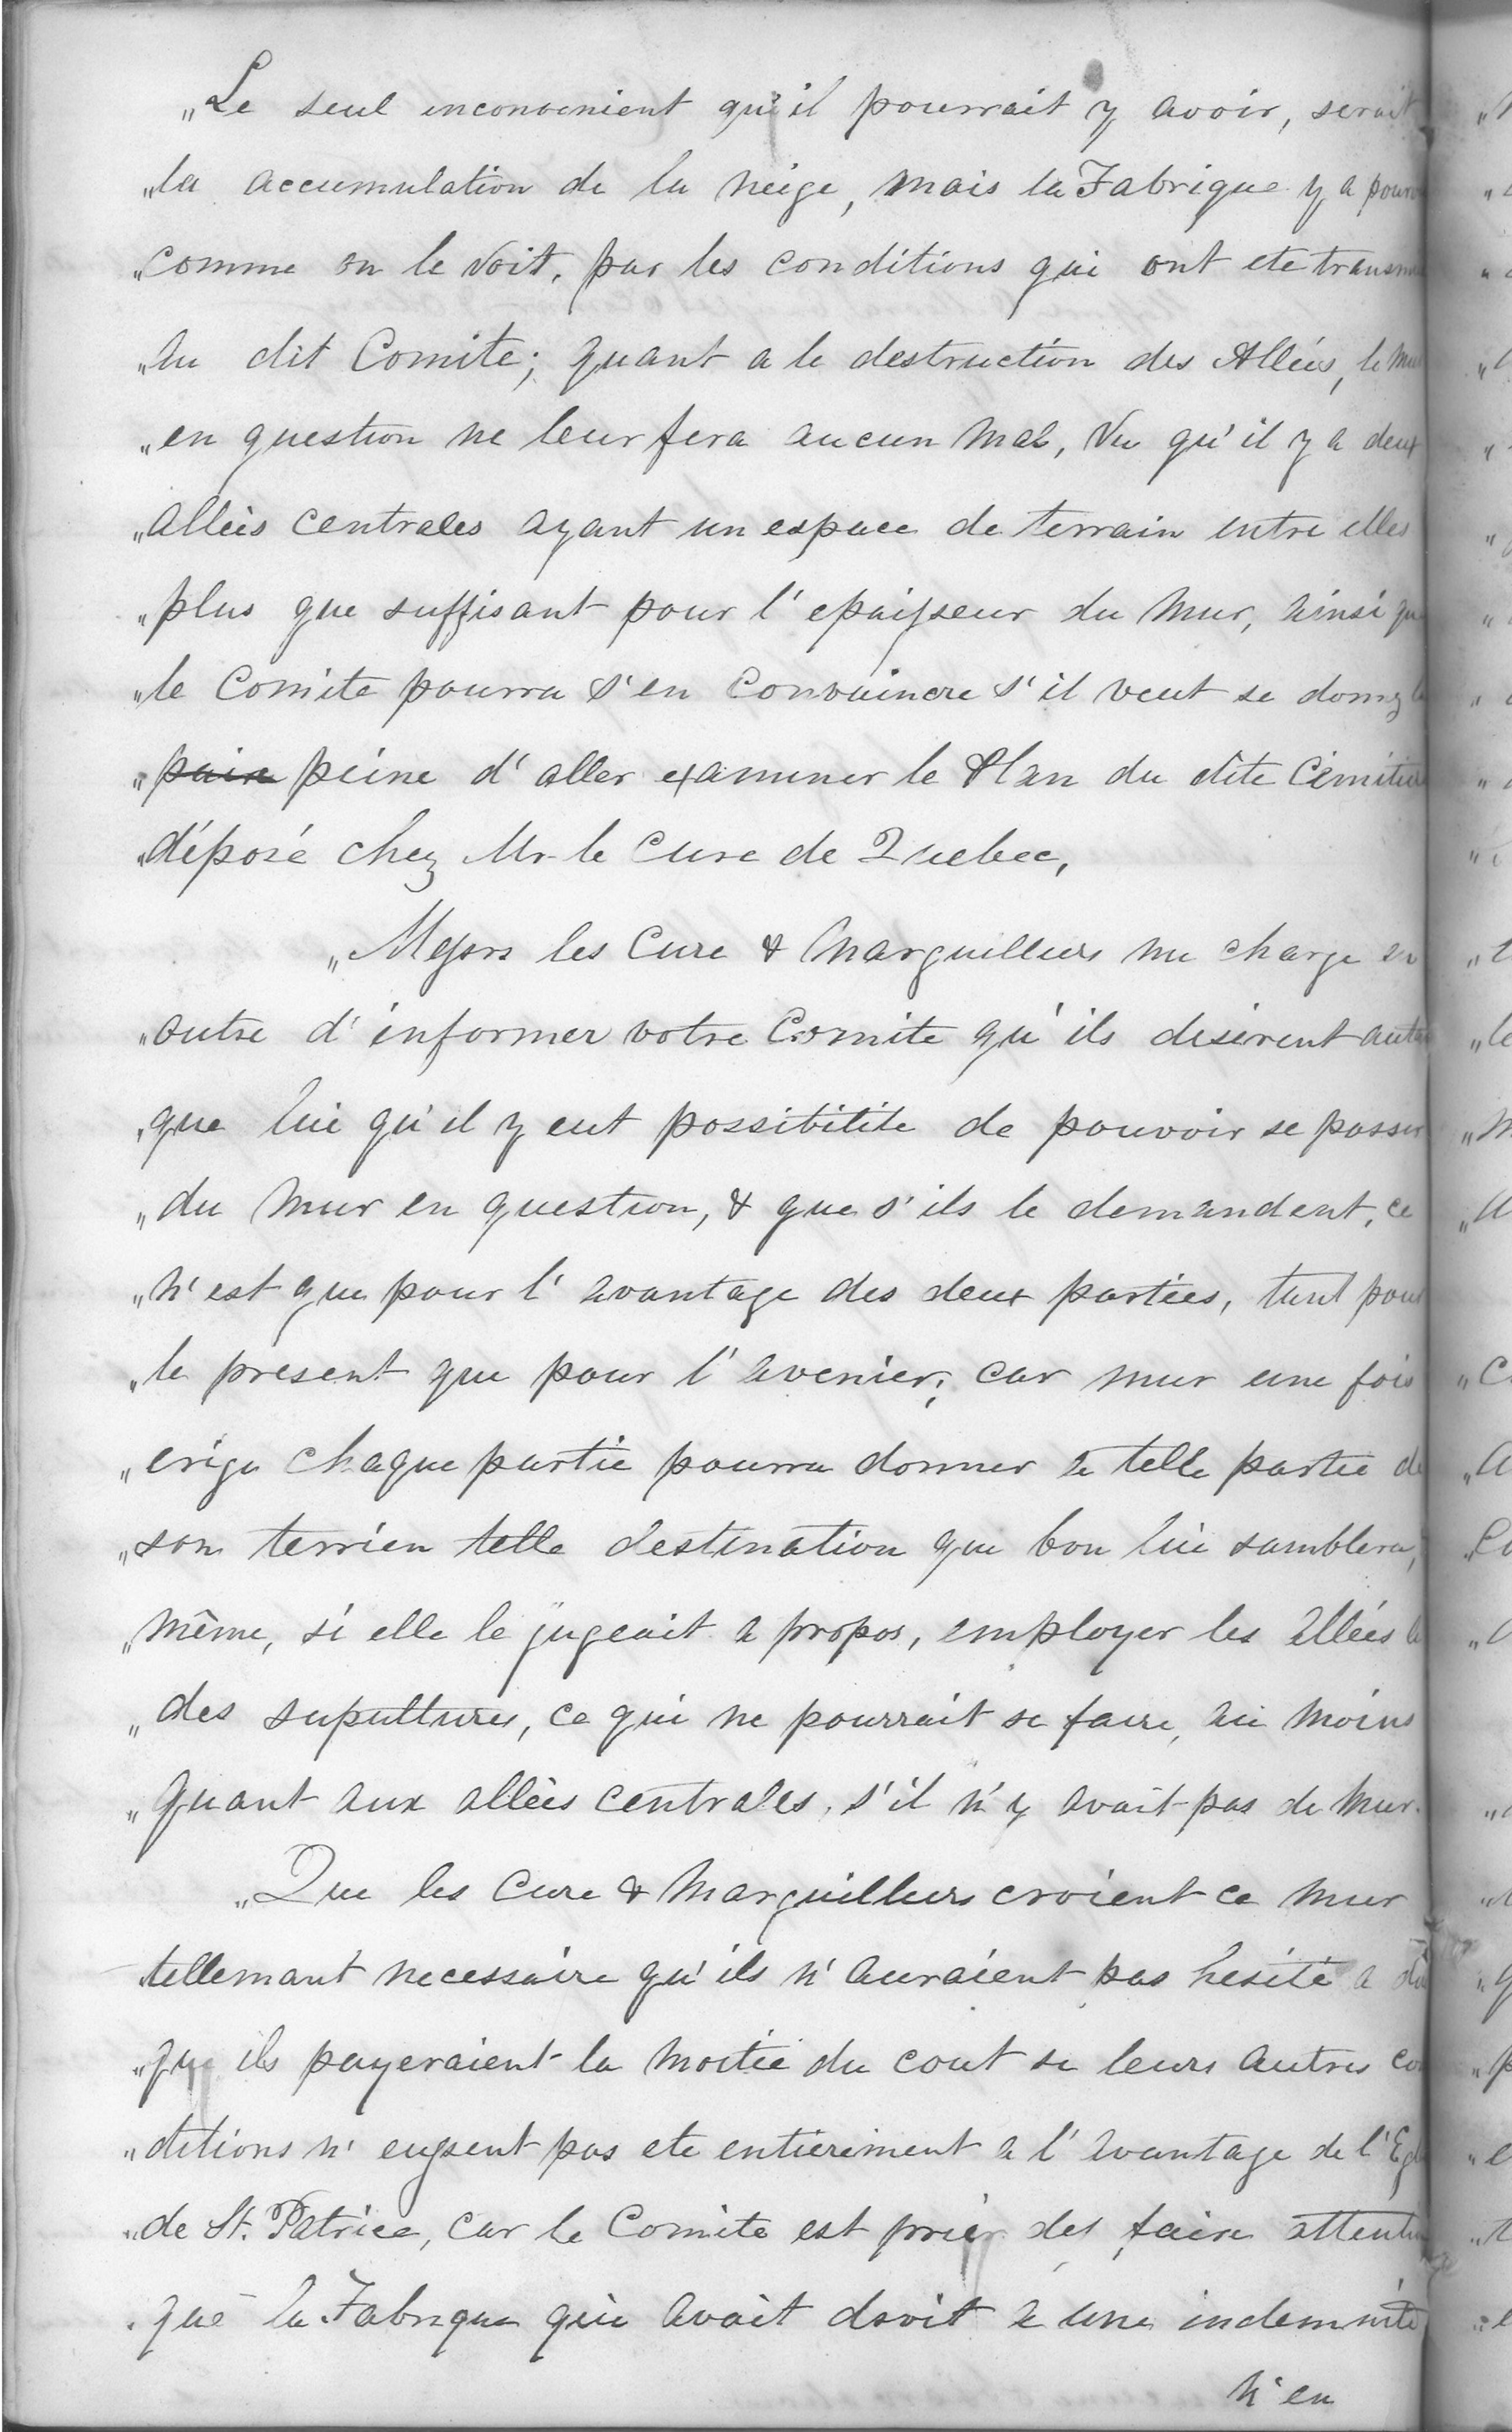 „Le seul inconvenient qu'il pourrait y avoir, serait
„la accumulation de la neige, mais la Fabrique y a pourv
„comme on le voit, par les conditions qui ont ete transm
„au dit Comite; quant a le destruction des Allées, le mu
„en question ne leur fera aucun mal, vu qu'il y a deux
„allées centrales ayant un espace de terrain entre elles
„plus que suffisant pour l'epaisseur du mur, ainsi que
„le Comite pourra s'en convaincre s'il veut se donner la
„pain peine d'aller examiner le Plan du dite Cimitiere
„déposé chez Mr. le Cure de Quebec,
„Messrs les Cure & Marguilliers me charge en
„outre d'informer votre Comite qu'ils desirent autan
„que lui qu'il y eut possibilite de pouvoir se passer
„du mur en question, & que s'ils le demandent, ce
„n'est que pour l'avantage des deux parties, tant pour
„le present que pour l'avenier; car mur une fois
„erige chaque partie pourra donner a telle partie de
„son terrien telle destination que bon lui samblera,
„même, si elle le jugeait a propos, employer les allées
„des supultures, ce qui ne pourrait se faire, au moins
„quant aux allées centrales, s'il n'y avait pas de mur.
„Que les Cure & Marguilliers croient ce mur
„tellemant necessaire qu'ils n'auraient pas hesité a di
„que ils payeraient la moitie du cout si leurs autres con
„ditions n'eussent pas ete entièrement a l'avantage de l'Egli
„de St. Patrice, car le Comite est prier des faire attenti
„que la Fabrique qui avait droit a une indemnité
n'en